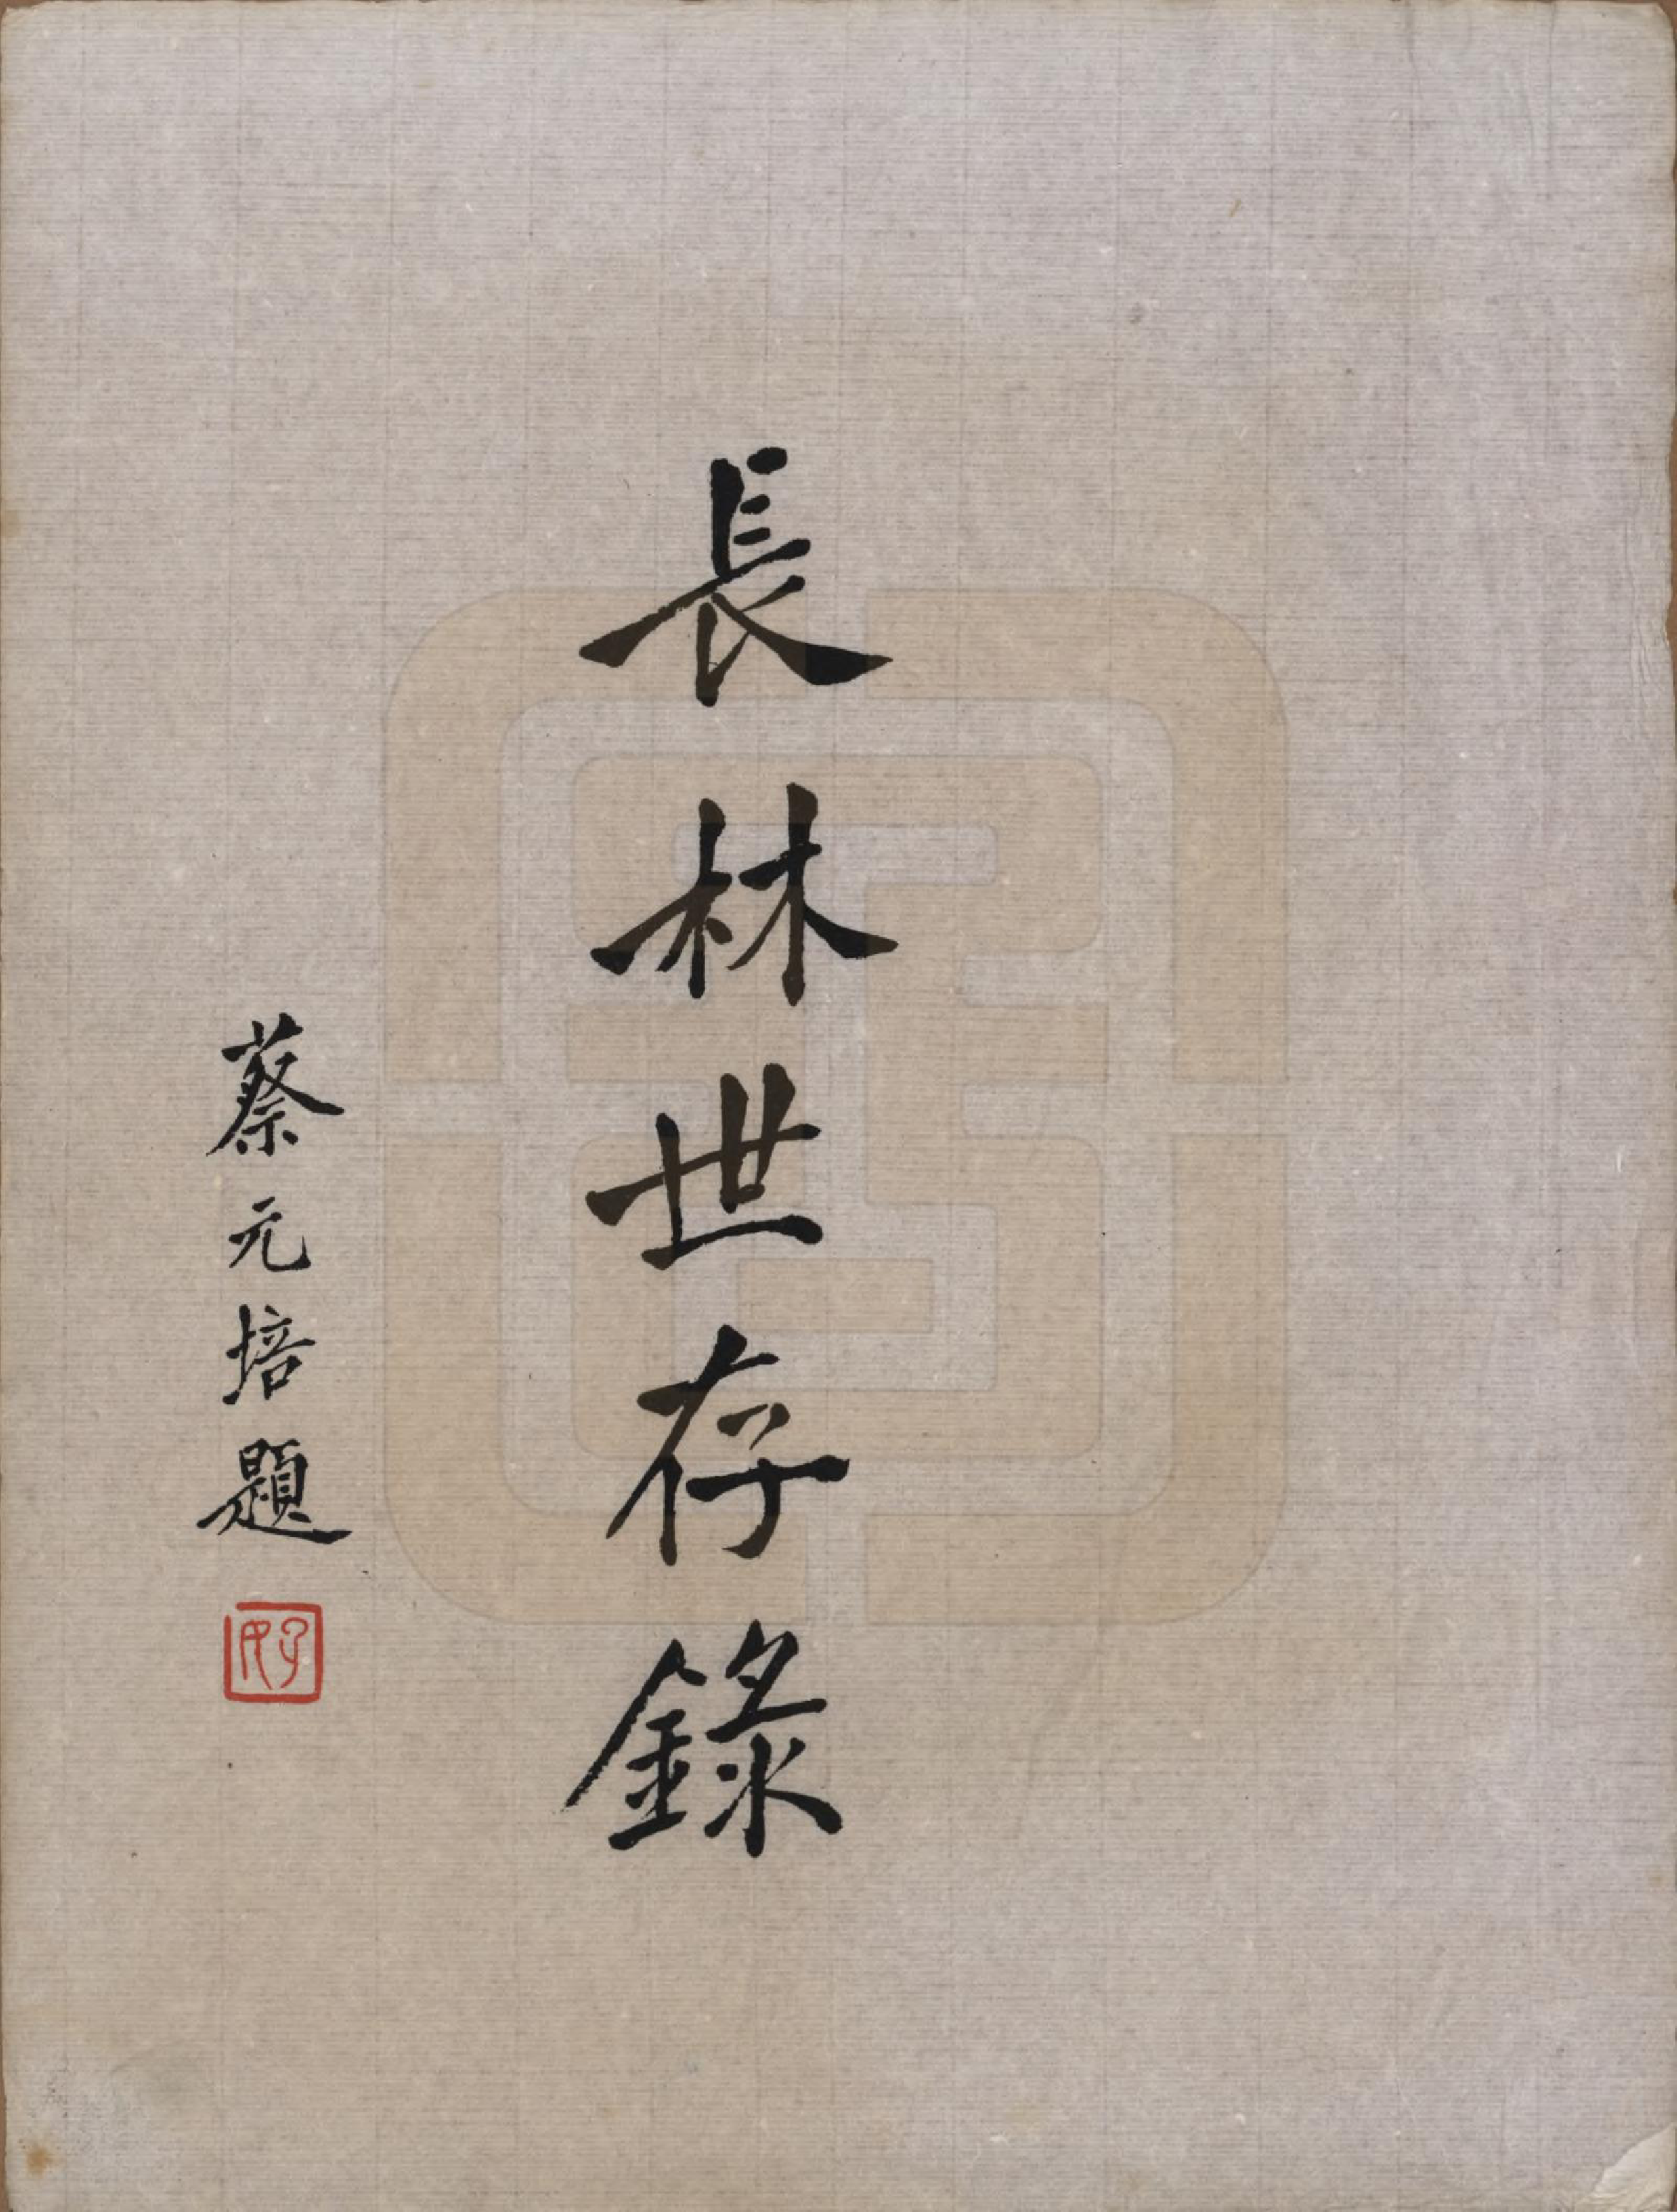 長林世存錄
蔡元培題